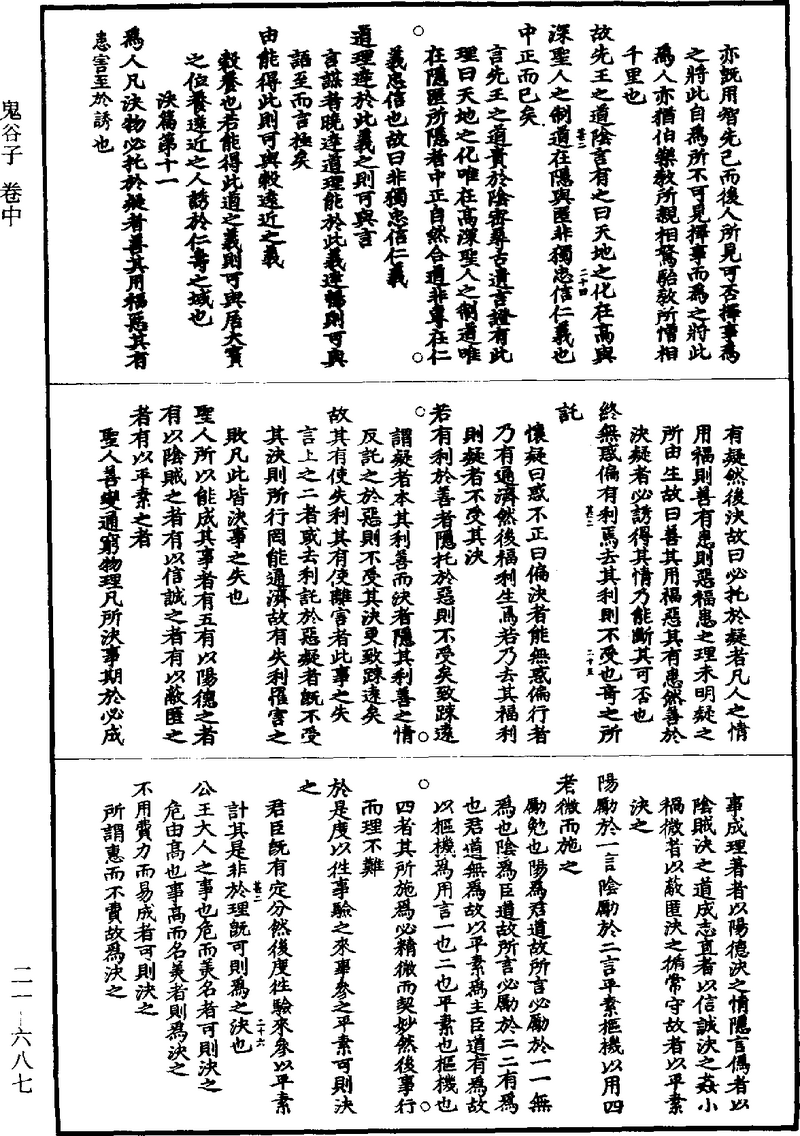 鬼谷子 卷中
二一—六八七
亦既用智先己而後人所見可否擇事為
之將此自為所不可見擇事而為之將此
為人亦猶伯樂教所親相駑駘教所憎相
千里也
故先王之道陰言有之曰天地之化在高與
深聖人之制道在隱與匿非獨忠信仁義也
中正而已矣
甚二 二十四
言先王之道貴於陰密尋古遺言證有此
理曰天地之化唯在高深聖人之制道唯
在隱匿所隱者中正自然合道非專在仁
義忠信也故曰非獨忠信仁義
道理達於此義之則可與言
言謀者曉達道理能於此義達暢則可與
語至而言極矣
由能得此則可與穀遠近之義
穀養也若能得此道之義則可與居大寶
之位養遠近之人誘於仁壽之域也
決篇第十一
為人凡決物必托於疑者善其用福惡其有
患害至於誘也
有疑然後決故曰必托於疑者凡人之情
用福則善有患則惡福患之理未明疑之
所由生故曰善其用福惡其有患然善於
決疑者必誘得其情乃能斷其可否也
終無惑偏有利焉去其利則不受也奇之所
託
甚二 二十五
懷疑曰惑不正曰偏決者能無惑偏行者
乃有通濟然後福利生焉若乃去其福利
則疑者不受其決
若有利於善者隱托於惡則不受矣致踈遠
謂疑者本其利善而決者隱其利善之情
反託之於惡則不受其決更致踈遠矣
故其有使失利其有使離害者此事之失
言上之二者或去利託於惡疑者既不受
其決則所行罔能通濟故有失利罹害之
敗凡此皆決事之失也
聖人所以能成其事者有五有以陽德之者
有以陰賊之者有以信誠之者有以蔽匿之
者有以平素之者
聖人善變通窮物理凡所決事期於必成
事成理著者以陽德決之情隱言偽者以
陰賊決之道成志直者以信誠決之姦小
禍微者以蔽匿決之循常守故者以平素
決之
陽勵於一言陰勵於二言平素樞機以用四
者微而施之
勵勉也陽為君道故所言必勵於一一無
為也陰為臣道故所言必勵於二二有為
也君道無為故以平素為主臣道有為故
以樞機為用言一也二也平素也樞機也
四者其所施為必精微而契妙然後事行
而理不難
於是度以往事驗之來事參之平素可則決
之
君臣既有定分然後度往驗來參以平素
計其是非於理既可則為之決也
甚二 二十六
公王大人之事也危而美名者可則決之
危由高也事高而名美者則為決之
不用費力而易成者可則決之
所謂惠而不費故為決之